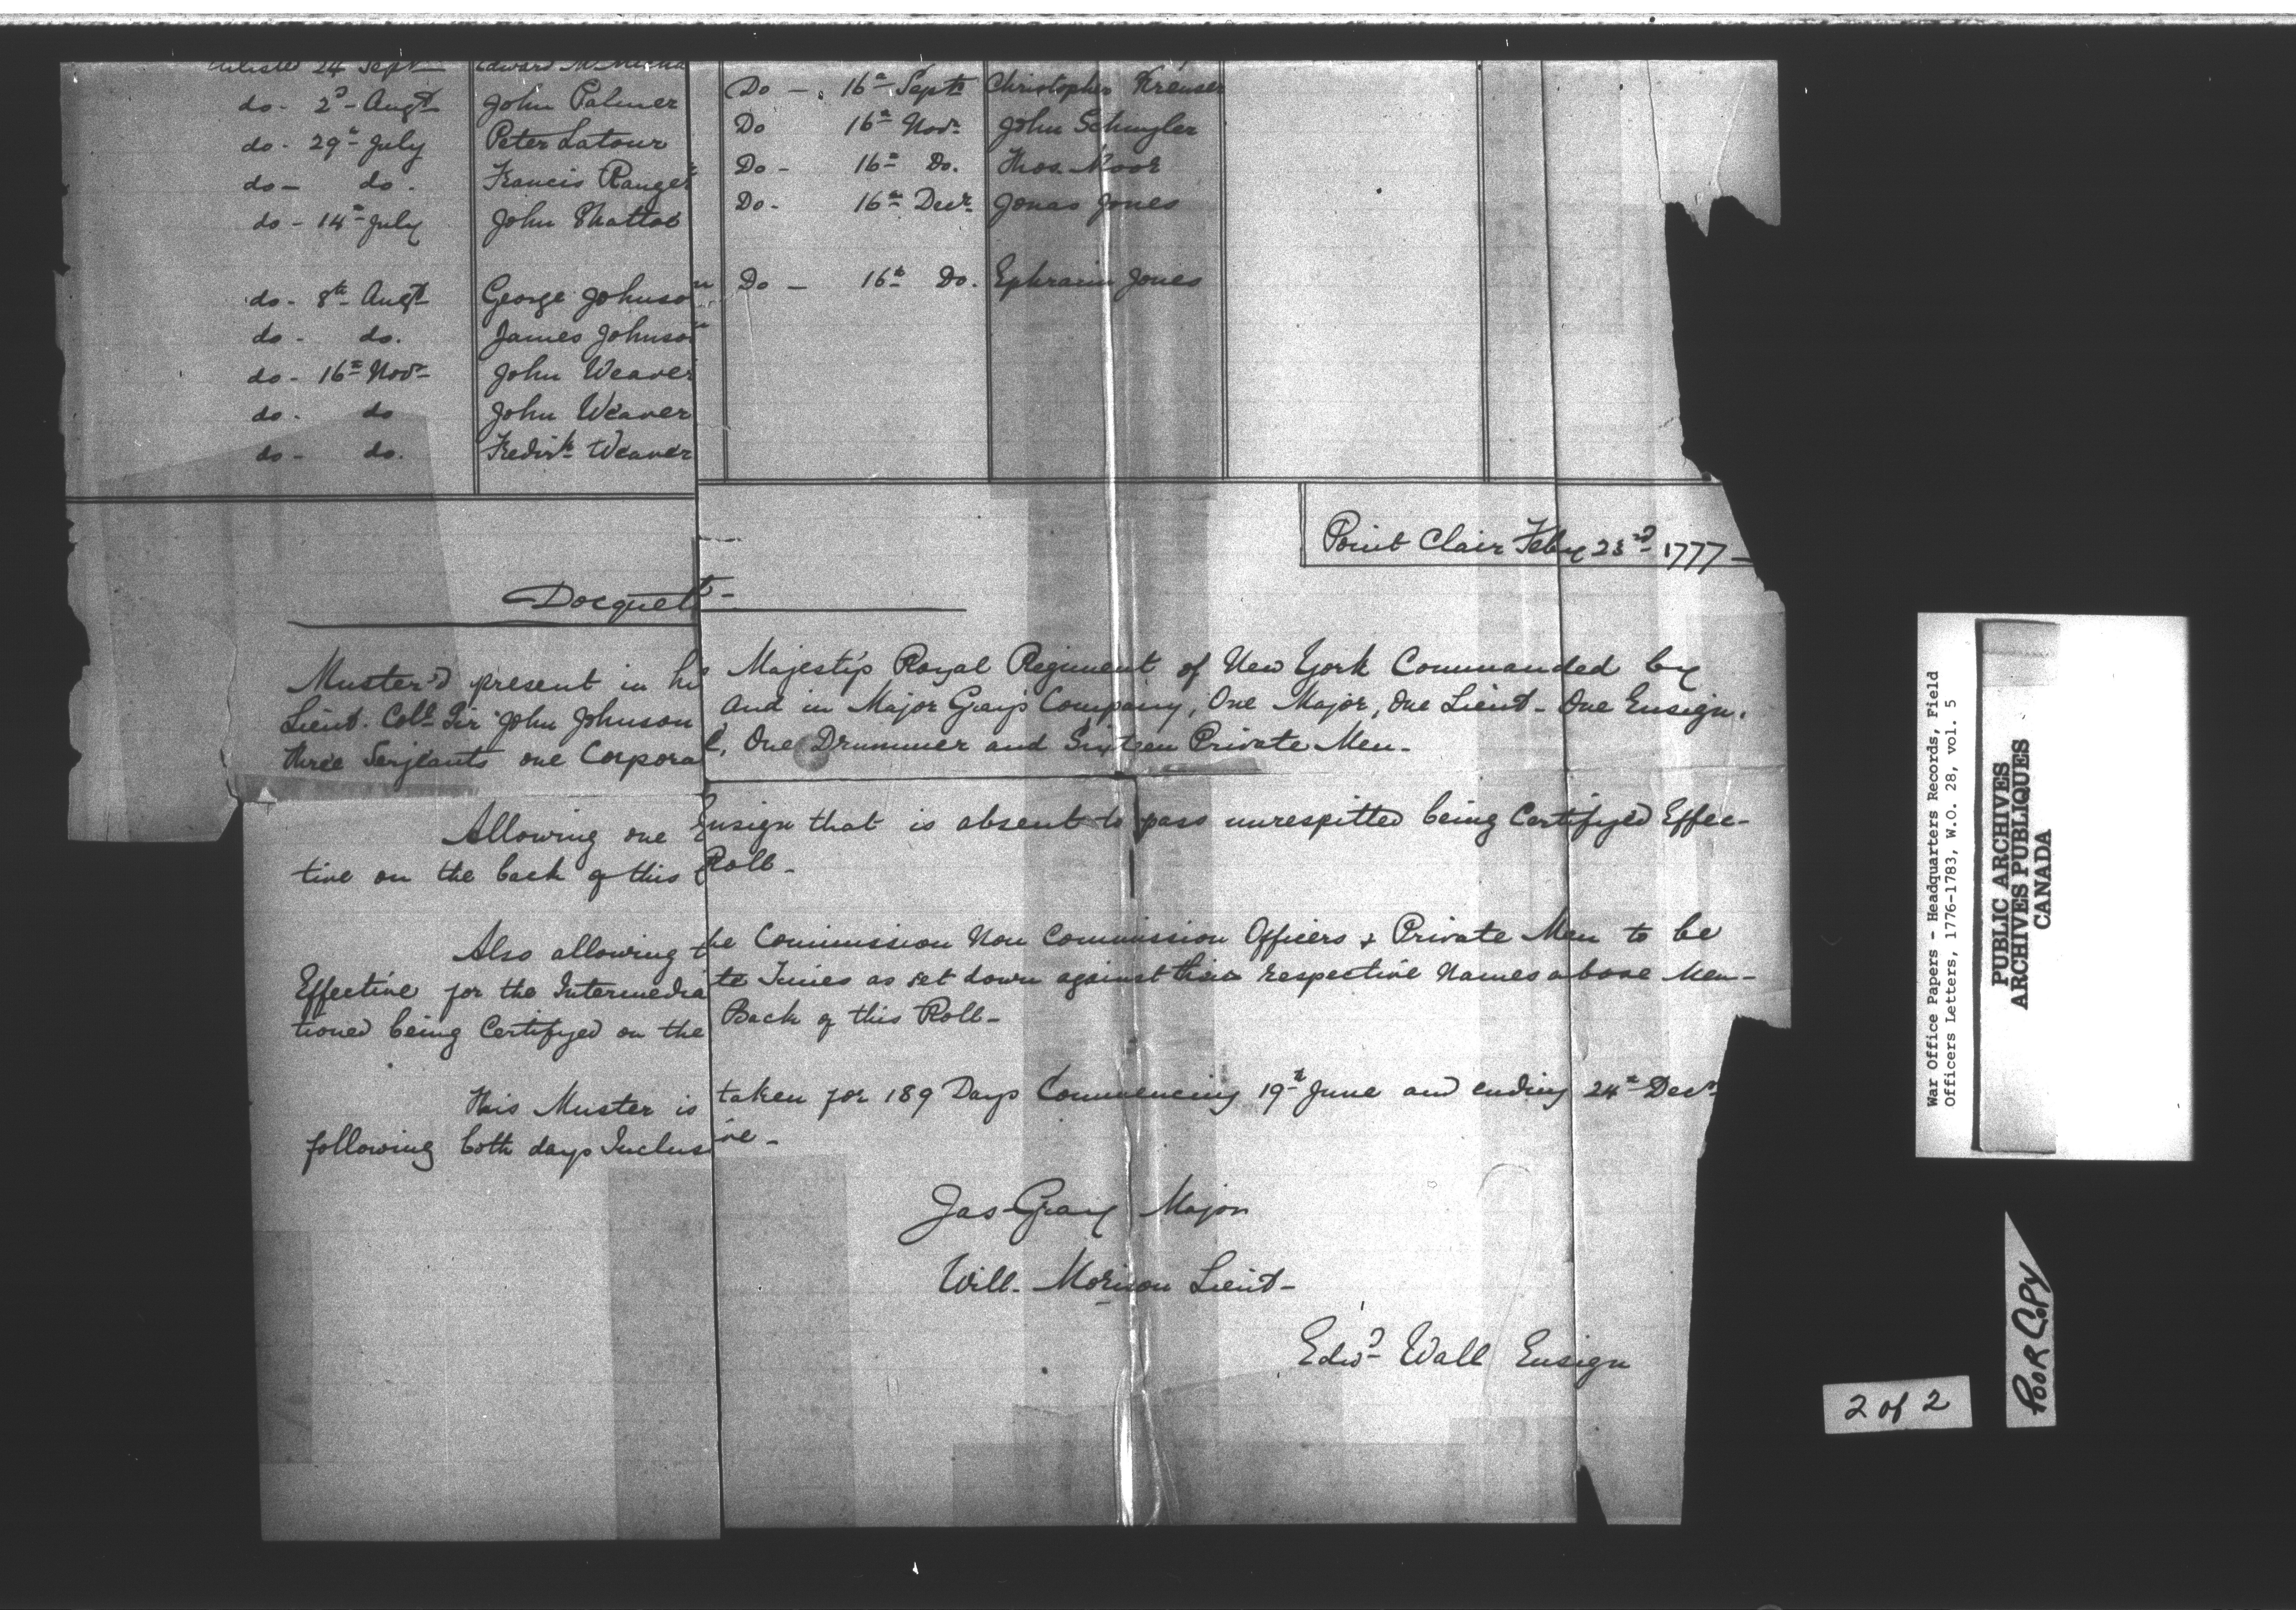 24 Sept Edward
do - 2d - Augt John Palmer
do - 29th July Peter Latour
do - do. Francis Ranger
do - 14th July John Shattoc
do - 8th Augt George Johnson
do - do. James Johnson
do - 16th Novr John Weaver
do - do John Weaver
do - do. Fredirk Weaver
Do - 16th Septr Christopher Krenser
Do 16th Novr John Schuyler
Do - 16th Do. Thos. Moor
Do - 16th Decr Jonas Jones
Do - 16th Do. Ephraim Jones
Point Clair Feby 23d 1777 -
Docquett -
Muster'd present in his Majesty's Royal Regiment of New York Commanded by
Lieut. Coll. Sir John Johnson And in Major Gray's Company, One Major, One Lieut - One Ensign,
three Serjeants one Corporal, One Drummer and Sixteen Private Men -
Allowing one Ensign that is absent to pass unrespitted being Certifyed Effec-
tive on the back of this Roll -
Also allowing the Commission Non Commission Officers & Private Men to be
Effective for the Intermediate Times as set down against their respective Names above Men-
tioned being Certifyed on the Back of this Roll -
This Muster is taken for 189 Days Commencing 19th June and ending 24th Decr
following both days Inclusive -
Jas Gray Major
Will. Morison Lieut -
Edwd Wall Ensign
War Office Papers - Headquarters Records, Field
Officers Letters, 1776-1783, W.O. 28, vol. 5
PUBLIC ARCHIVES
ARCHIVES PUBLIQUES
CANADA
2 of 2
POOR COPY